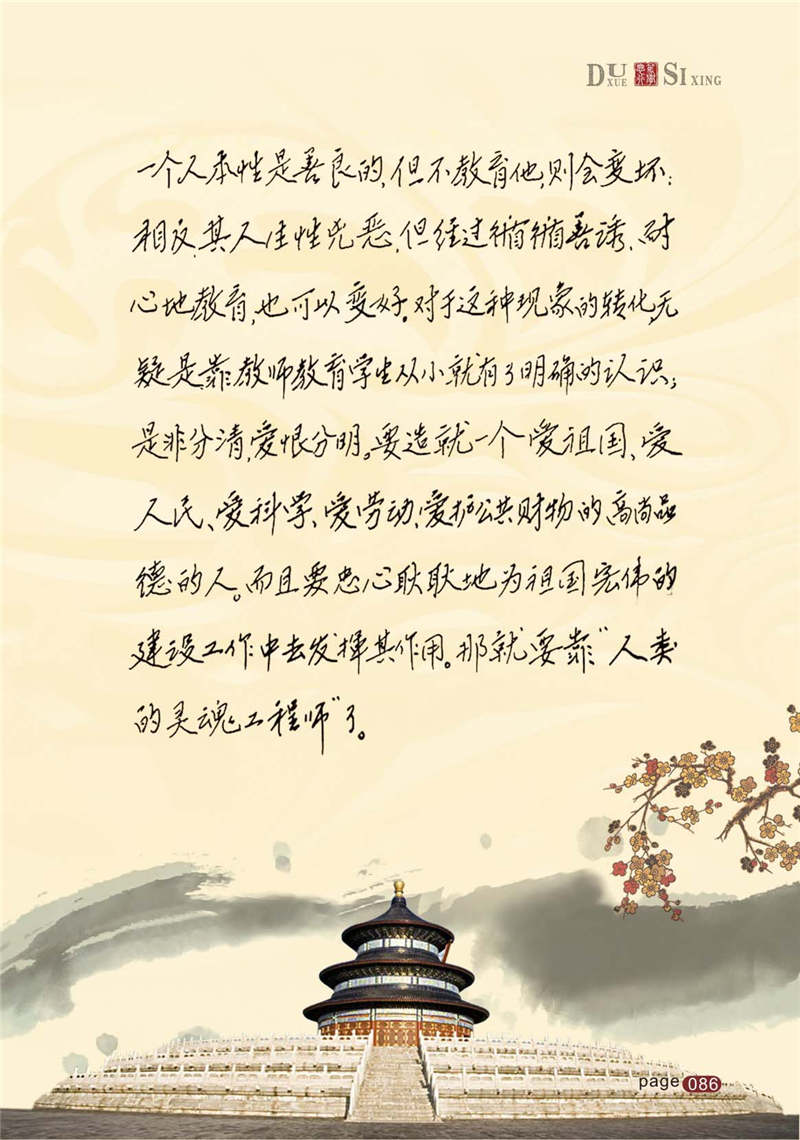 DU XUE SI XING
一个人本性是善良的,但不教育他,则会变坏;
相反,其人生性兇恶,但经过循循善诱、耐
心地教育,也可以变好。对于这种现象的转化,无
疑是靠教师教育学生从小就有了明确的认识;
是非分清,爱恨分明。要造就一个爱祖国、爱
人民、爱科学、爱劳动、爱护公共财物的高尚品
德的人。而且要忠心耿耿地为祖国宏伟的
建设工作中去发挥其作用。那就要靠“人类
的灵魂工程师”了。
page 086